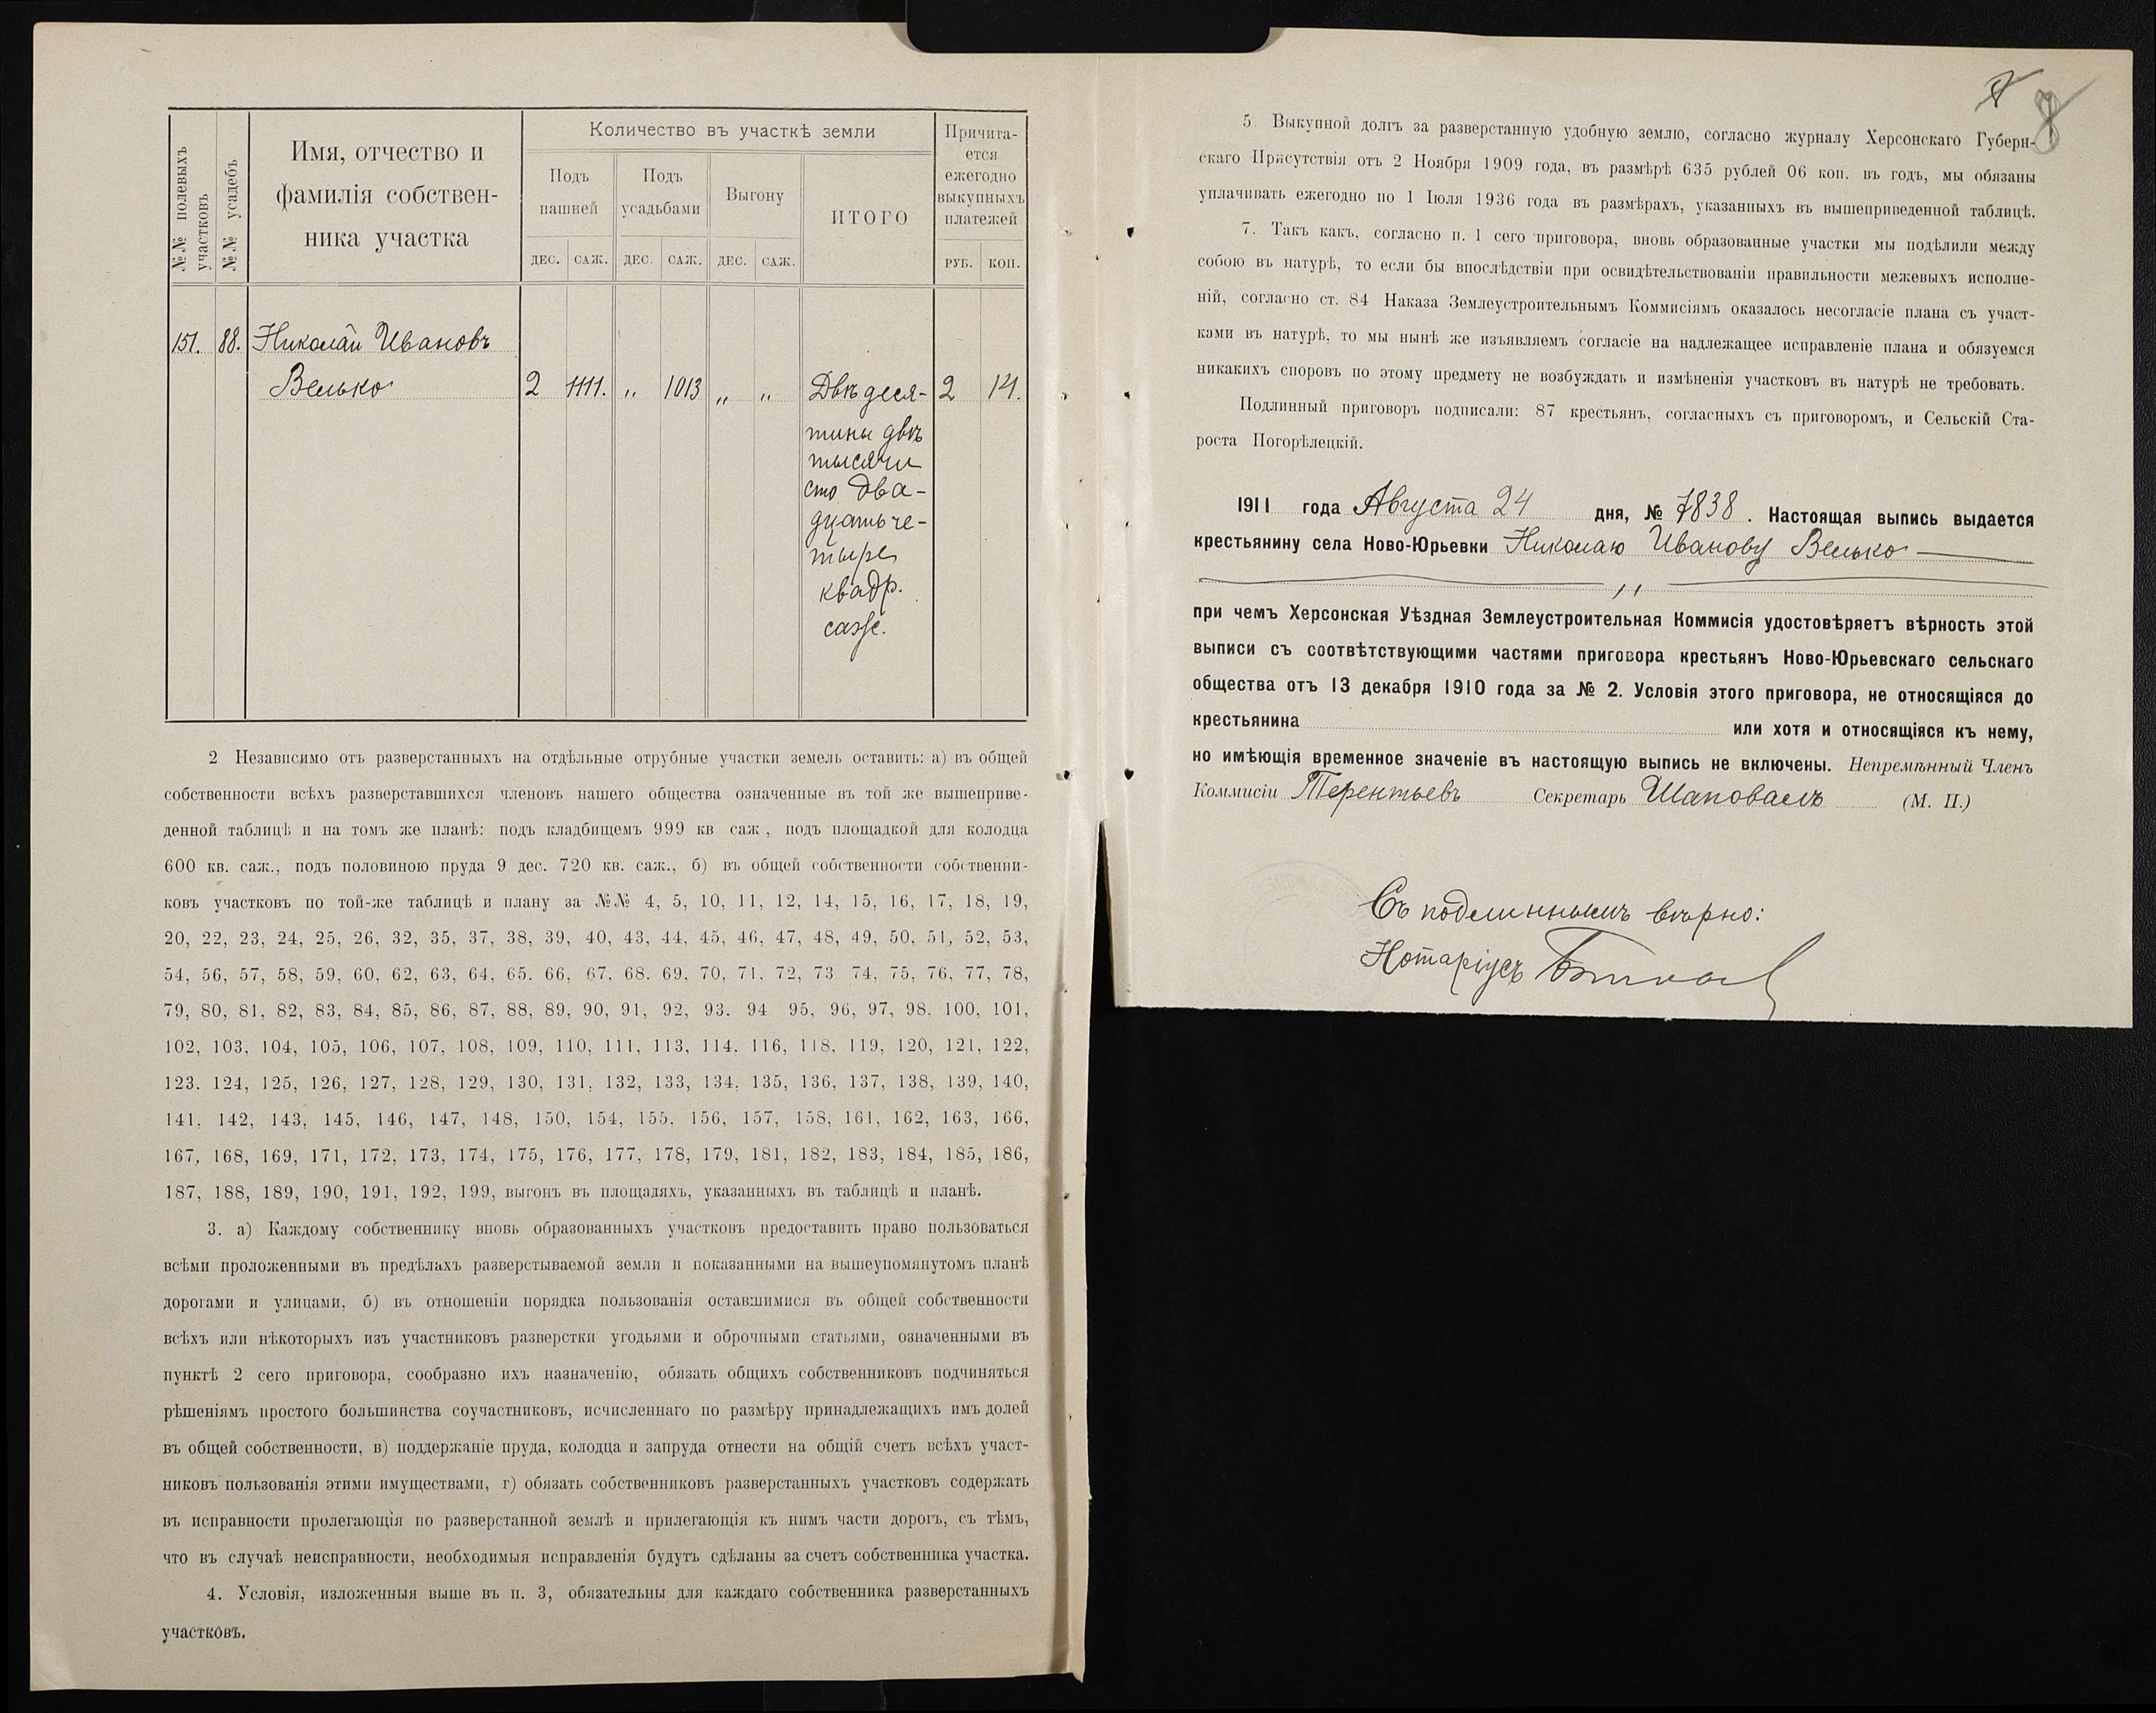 №№ полевыхъ участковъ
№№ усадебъ
Имя, отчество и
фамилія собствен-
ника участка
Количество въ участкѣ земли
Подъ
пашней
Подъ
усадьбами
Выгону
ИТОГО
Причита-
ется
ежегодно
выкупныхъ
платежей
ДЕС. САЖ. ДЕС. САЖ. ДЕС. САЖ. РУБ. КОП.
151. 88. Николай Ивановъ
Велько 2 1111. „ 1013 „ „ Двѣ деся- 2 14.
тины двѣ
тысячи
сто два-
дцать че-
тыре
квадр.
саж.
2 Независимо отъ разверстанныхъ на отдѣльные отрубные участки земель оставить: а) въ общей
собственности всѣхъ разверставшихся членовъ нашего общества означенные въ той же вышеприве-
денной таблицѣ и на томъ же планѣ: подъ кладбищемъ 999 кв саж, подъ площадкой для колодца
600 кв. саж., подъ половиною пруда 9 дес. 720 кв. саж., б) въ общей собственности собственни-
ковъ участковъ по той-же таблицѣ и плану за №№ 4, 5, 10, 11, 12, 14, 15, 16, 17, 18, 19,
20, 22, 23, 24, 25, 26, 32, 35, 37, 38, 39, 40, 43, 44, 45, 46, 47, 48, 49, 50, 51, 52, 53,
54, 56, 57, 58, 59, 60, 62, 63, 64, 65. 66, 67, 68. 69, 70, 71. 72, 73 74, 75, 76, 77, 78,
79, 80, 81, 82, 83, 84, 85, 86, 87, 88, 89, 90, 91, 92, 93. 94 95, 96, 97, 98. 100, 101,
102, 103, 104, 105, 106, 107, 108, 109, 110, 111, 113, 114. 116, 118, 119, 120, 121, 122,
123. 124, 125, 126, 127, 128, 129, 130, 131, 132, 133, 134, 135, 136, 137, 138, 139, 140,
141, 142, 143, 145, 146, 147, 148, 150, 154, 155, 156, 157, 158, 161, 162, 163, 166,
167, 168, 169, 171, 172, 173, 174, 175, 176, 177, 178, 179, 181, 182, 183, 184, 185, 186,
187, 188, 189, 190, 191, 192, 199, выгонъ въ площадяхъ, указанныхъ въ таблицѣ и планѣ.
3. а) Каждому собственнику вновь образованныхъ участковъ предоставить право пользоваться
всѣми проложенными въ предѣлахъ разверстываемой земли и показанными на вышеупомянутомъ планѣ
дорогами и улицами, б) въ отношеніи порядка пользованія оставшимися въ общей собственности
всѣхъ или нѣкоторыхъ изъ участниковъ разверстки угодьями и оброчными статьями, означенными въ
пунктѣ 2 сего приговора, сообразно ихъ назначенію, обязать общихъ собственниковъ подчиняться
рѣшеніямъ простого большинства соучастниковъ, исчисленнаго по размѣру принадлежащихъ имъ долей
въ общей собственности, в) поддержаніе пруда, колодца и запруда отнести на общій счетъ всѣхъ участ-
никовъ пользованія этими имуществами, г) обязать собственниковъ разверстанныхъ участковъ содержать
въ исправности пролегающія по разверстанной землѣ и прилегающія къ нимъ части дорогъ, съ тѣмъ,
что въ случаѣ неисправности, необходимыя исправленія будутъ сдѣланы за счетъ собственника участка.
4. Условія, изложенныя выше въ п. 3, обязательны для каждаго собственника разверстанныхъ
участковъ.
8
5. Выкупной долгъ за разверстанную удобную землю, согласно журналу Херсонскаго Губерн-
скаго Присутствія отъ 2 Ноября 1909 года, въ размѣрѣ 635 рублей 06 коп. въ годъ, мы обязаны
уплачивать ежегодно по 1 Іюля 1936 года въ размѣрахъ, указанныхъ въ вышеприведенной таблицѣ.
7. Такъ какъ, согласно п. 1 сего приговора, вновь образованные участки мы подѣлили между
собою въ натурѣ, то если бы впослѣдствіи при освидѣтельствованіи правильности межевыхъ исполне-
ній, согласно ст. 84 Наказа Землеустроительнымъ Коммисіямъ оказалось несогласіе плана съ участ-
ками въ натурѣ, то мы нынѣ же изъявляемъ согласіе на надлежащее исправленіе плана и обязуемся
никакихъ споровъ по этому предмету не возбуждать и измѣненія участковъ въ натурѣ не требовать.
Подлинный приговоръ подписали: 87 крестьянъ, согласныхъ съ приговоромъ, и Сельскій Ста-
роста Погорѣлецкій.
1911 года Августа 24 дня, № 7838. Настоящая выпись выдается
крестьянину села Ново-Юрьевки Николаю Иванову Велько
при чемъ Херсонская Уѣздная Землеустроительная Коммисія удостовѣряетъ вѣрность этой
выписи съ соотвѣтствующими частями приговора крестьянъ Ново-Юрьевскаго сельскаго
общества отъ 13 декабря 1910 года за № 2. Условія этого приговора, не относящіяся до
крестьянина или хотя и относящіяся къ нему,
но имѣющія временное значеніе въ настоящую выпись не включены. Непремѣнный Членъ
Коммисіи Терентьевъ Секретарь Шаповалъ (М. П.)
Съ подлиннымъ вѣрно:
Нотаріусъ